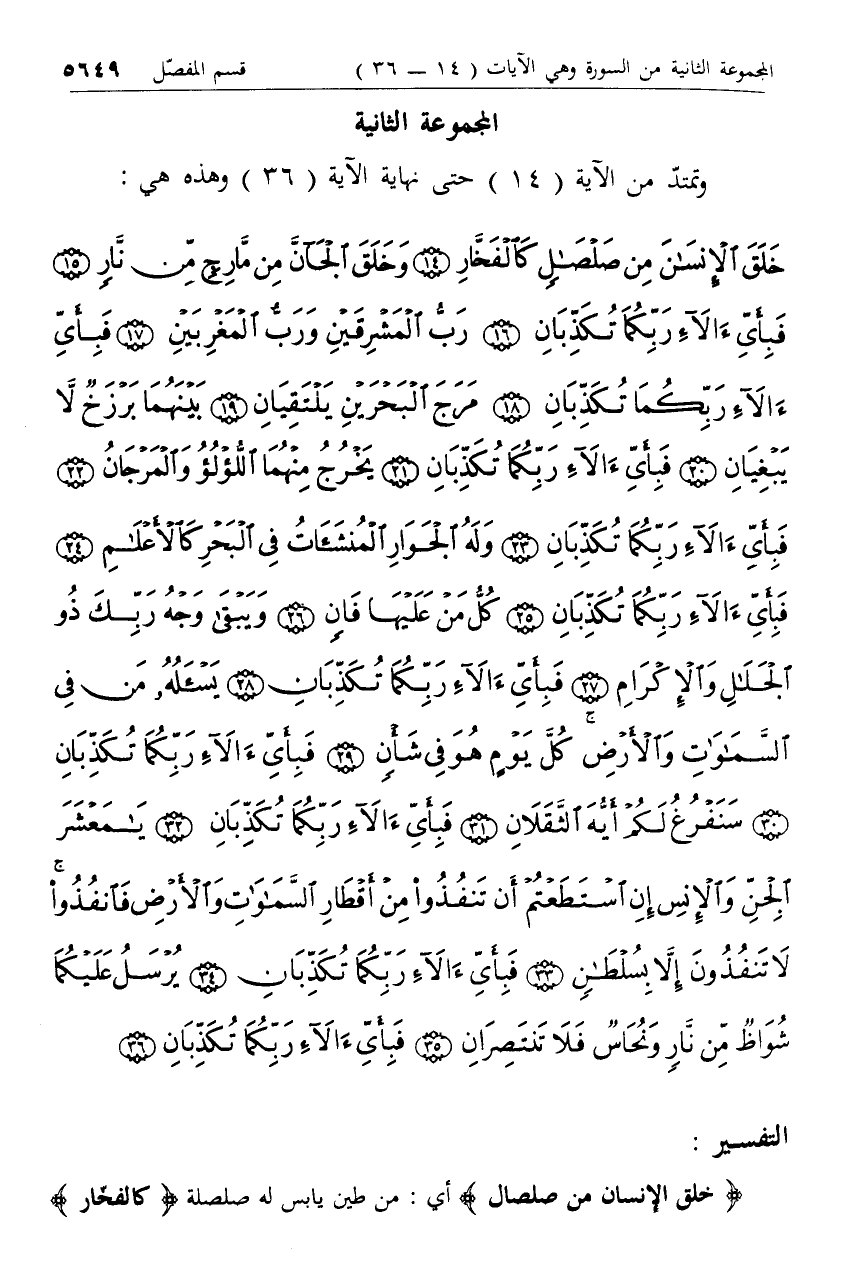 المجموعة الثانية من السورة وهي الآيات ( ١٤ ــ ٣٦ ) قسم المفصّل ٥٦٤٩
المجموعة الثانية
وتمتدّ من الآية ( ١٤ ) حتى نهاية الآية ( ٣٦ ) وهذه هي :
خَلَقَ ٱلْإِنسَٰنَ مِن صَلْصَٰلٍ كَٱلْفَخَّارِ ١٤ وَخَلَقَ ٱلْجَآنَّ مِن مَّارِجٍ مِّن نَّارٍ ١٥
فَبِأَيِّ ءَالَآءِ رَبِّكُمَا تُكَذِّبَانِ ١٦ رَبُّ ٱلْمَشْرِقَيْنِ وَرَبُّ ٱلْمَغْرِبَيْنِ ١٧ فَبِأَيِّ
ءَالَآءِ رَبِّكُمَا تُكَذِّبَانِ ١٨ مَرَجَ ٱلْبَحْرَيْنِ يَلْتَقِيَانِ ١٩ بَيْنَهُمَا بَرْزَخٌ لَّا
يَبْغِيَانِ ٢٠ فَبِأَيِّ ءَالَآءِ رَبِّكُمَا تُكَذِّبَانِ ٢١ يَخْرُجُ مِنْهُمَا ٱللُّؤْلُؤُ وَٱلْمَرْجَانُ ٢٢
فَبِأَيِّ ءَالَآءِ رَبِّكُمَا تُكَذِّبَانِ ٢٣ وَلَهُ ٱلْجَوَارِ ٱلْمُنشَـَٔاتُ فِى ٱلْبَحْرِ كَٱلْأَعْلَٰمِ ٢٤
فَبِأَيِّ ءَالَآءِ رَبِّكُمَا تُكَذِّبَانِ ٢٥ كُلُّ مَنْ عَلَيْهَا فَانٍ ٢٦ وَيَبْقَىٰ وَجْهُ رَبِّكَ ذُو
ٱلْجَلَٰلِ وَٱلْإِكْرَامِ ٢٧ فَبِأَيِّ ءَالَآءِ رَبِّكُمَا تُكَذِّبَانِ ٢٨ يَسْـَٔلُهُۥ مَن فِى
ٱلسَّمَٰوَٰتِ وَٱلْأَرْضِ ۚ كُلَّ يَوْمٍ هُوَ فِى شَأْنٍ ٢٩ فَبِأَيِّ ءَالَآءِ رَبِّكُمَا تُكَذِّبَانِ
٣٠ سَنَفْرُغُ لَكُمْ أَيُّهَ ٱلثَّقَلَانِ ٣١ فَبِأَيِّ ءَالَآءِ رَبِّكُمَا تُكَذِّبَانِ ٣٢ يَٰمَعْشَرَ
ٱلْجِنِّ وَٱلْإِنسِ إِنِ ٱسْتَطَعْتُمْ أَن تَنفُذُوا۟ مِنْ أَقْطَارِ ٱلسَّمَٰوَٰتِ وَٱلْأَرْضِ فَٱنفُذُوا۟ ۚ
لَا تَنفُذُونَ إِلَّا بِسُلْطَٰنٍ ٣٣ فَبِأَيِّ ءَالَآءِ رَبِّكُمَا تُكَذِّبَانِ ٣٤ يُرْسَلُ عَلَيْكُمَا
شُوَاظٌ مِّن نَّارٍ وَنُحَاسٌ فَلَا تَنتَصِرَانِ ٣٥ فَبِأَيِّ ءَالَآءِ رَبِّكُمَا تُكَذِّبَانِ ٣٦
التفسير :
﴿ خلق الإنسان من صلصال ﴾ أي : من طين يابس له صلصلة ﴿ كالفخّار ﴾